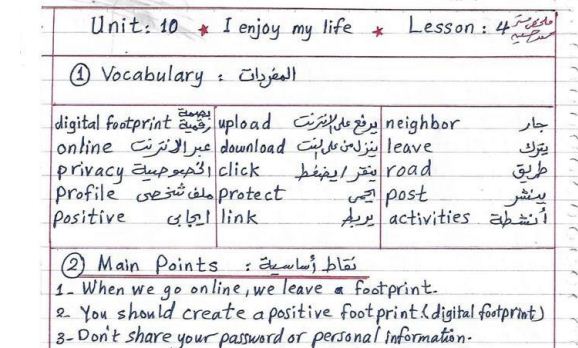 Unit: 10 ★ I enjoy my life ★ Lesson: 4
① Vocabulary : المفردات
digital footprint بصمة رقمية upload يرفع على الانترنت neighbor جار
online عبر الانترنت download ينزل من على النت leave يترك
privacy الخصوصية click ينقر / يضغط road طريق
Profile ملف شخصي protect يحمي post ينشر
Positive ايجابى link يربط activities أنشطة
② Main Points : نقاط أساسية
1- When we go online, we leave a footprint.
2- You should create a positive footprint. (digital footprint)
3- Don't share your password or personal information.